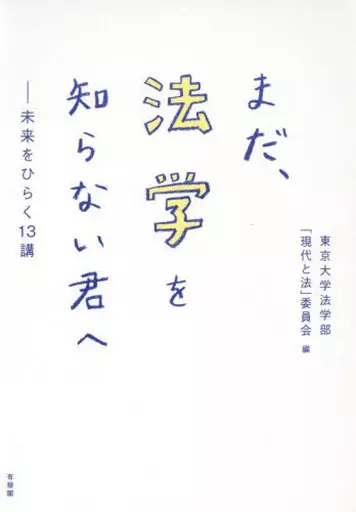 まだ、
法学を
知らない君へ
──未来をひらく13講
東京大学法学部
「現代と法」委員会 編
有斐閣